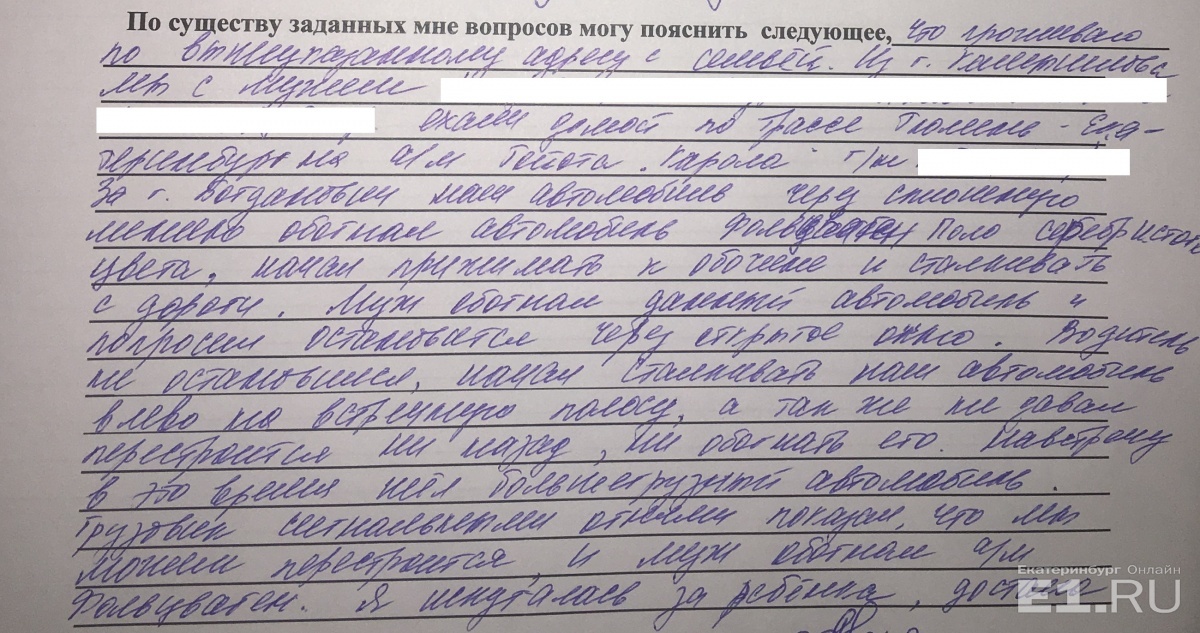 По существу заданных мне вопросов могу пояснить следующее, что проживаю
по вышеуказанному адресу с семьёй. Из г.
мы с мужем
ехали домой по трассе Тюмень - Ека-
теринбург на а/м Тойота "Карола" г/н
За г. Богдановичи наш автомобиль через сплошную
линию обогнал автомобиль Фольцваген Поло серебристого
цвета, начал прижимать к обочине и сталкивать
с дороги. Муж обогнал данный автомобиль и
попросил остановится через открытое окно. Водитель
не остановился, начал сталкивать наш автомобиль
влево на встречную полосу, а так же не давал
перестроится ни назад, ни обогнать его. Навстречу
в это время шёл большегрузный автомобиль.
Грузовик сигнальными огнями показал, что мы
можем перестроится, и муж обогнал а/м
Фольцваген. Я испугалась за ребёнка, достала
Екатеринбург Онлайн
E1.RU